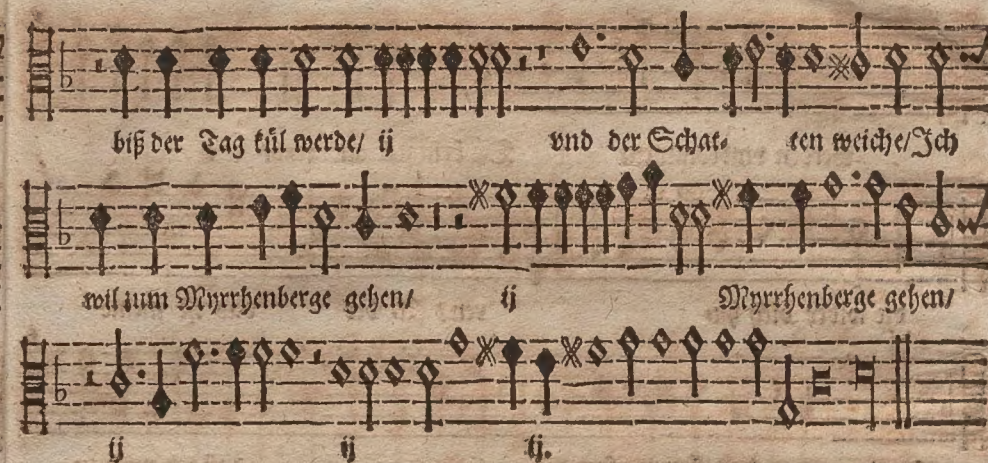 biß der Tag kül werde/ ij vnd der Schat- ten weiche/Ich
wil zum Myrrhenberge gehen/ ij Myrrhenberge gehen/
ij ij ij.